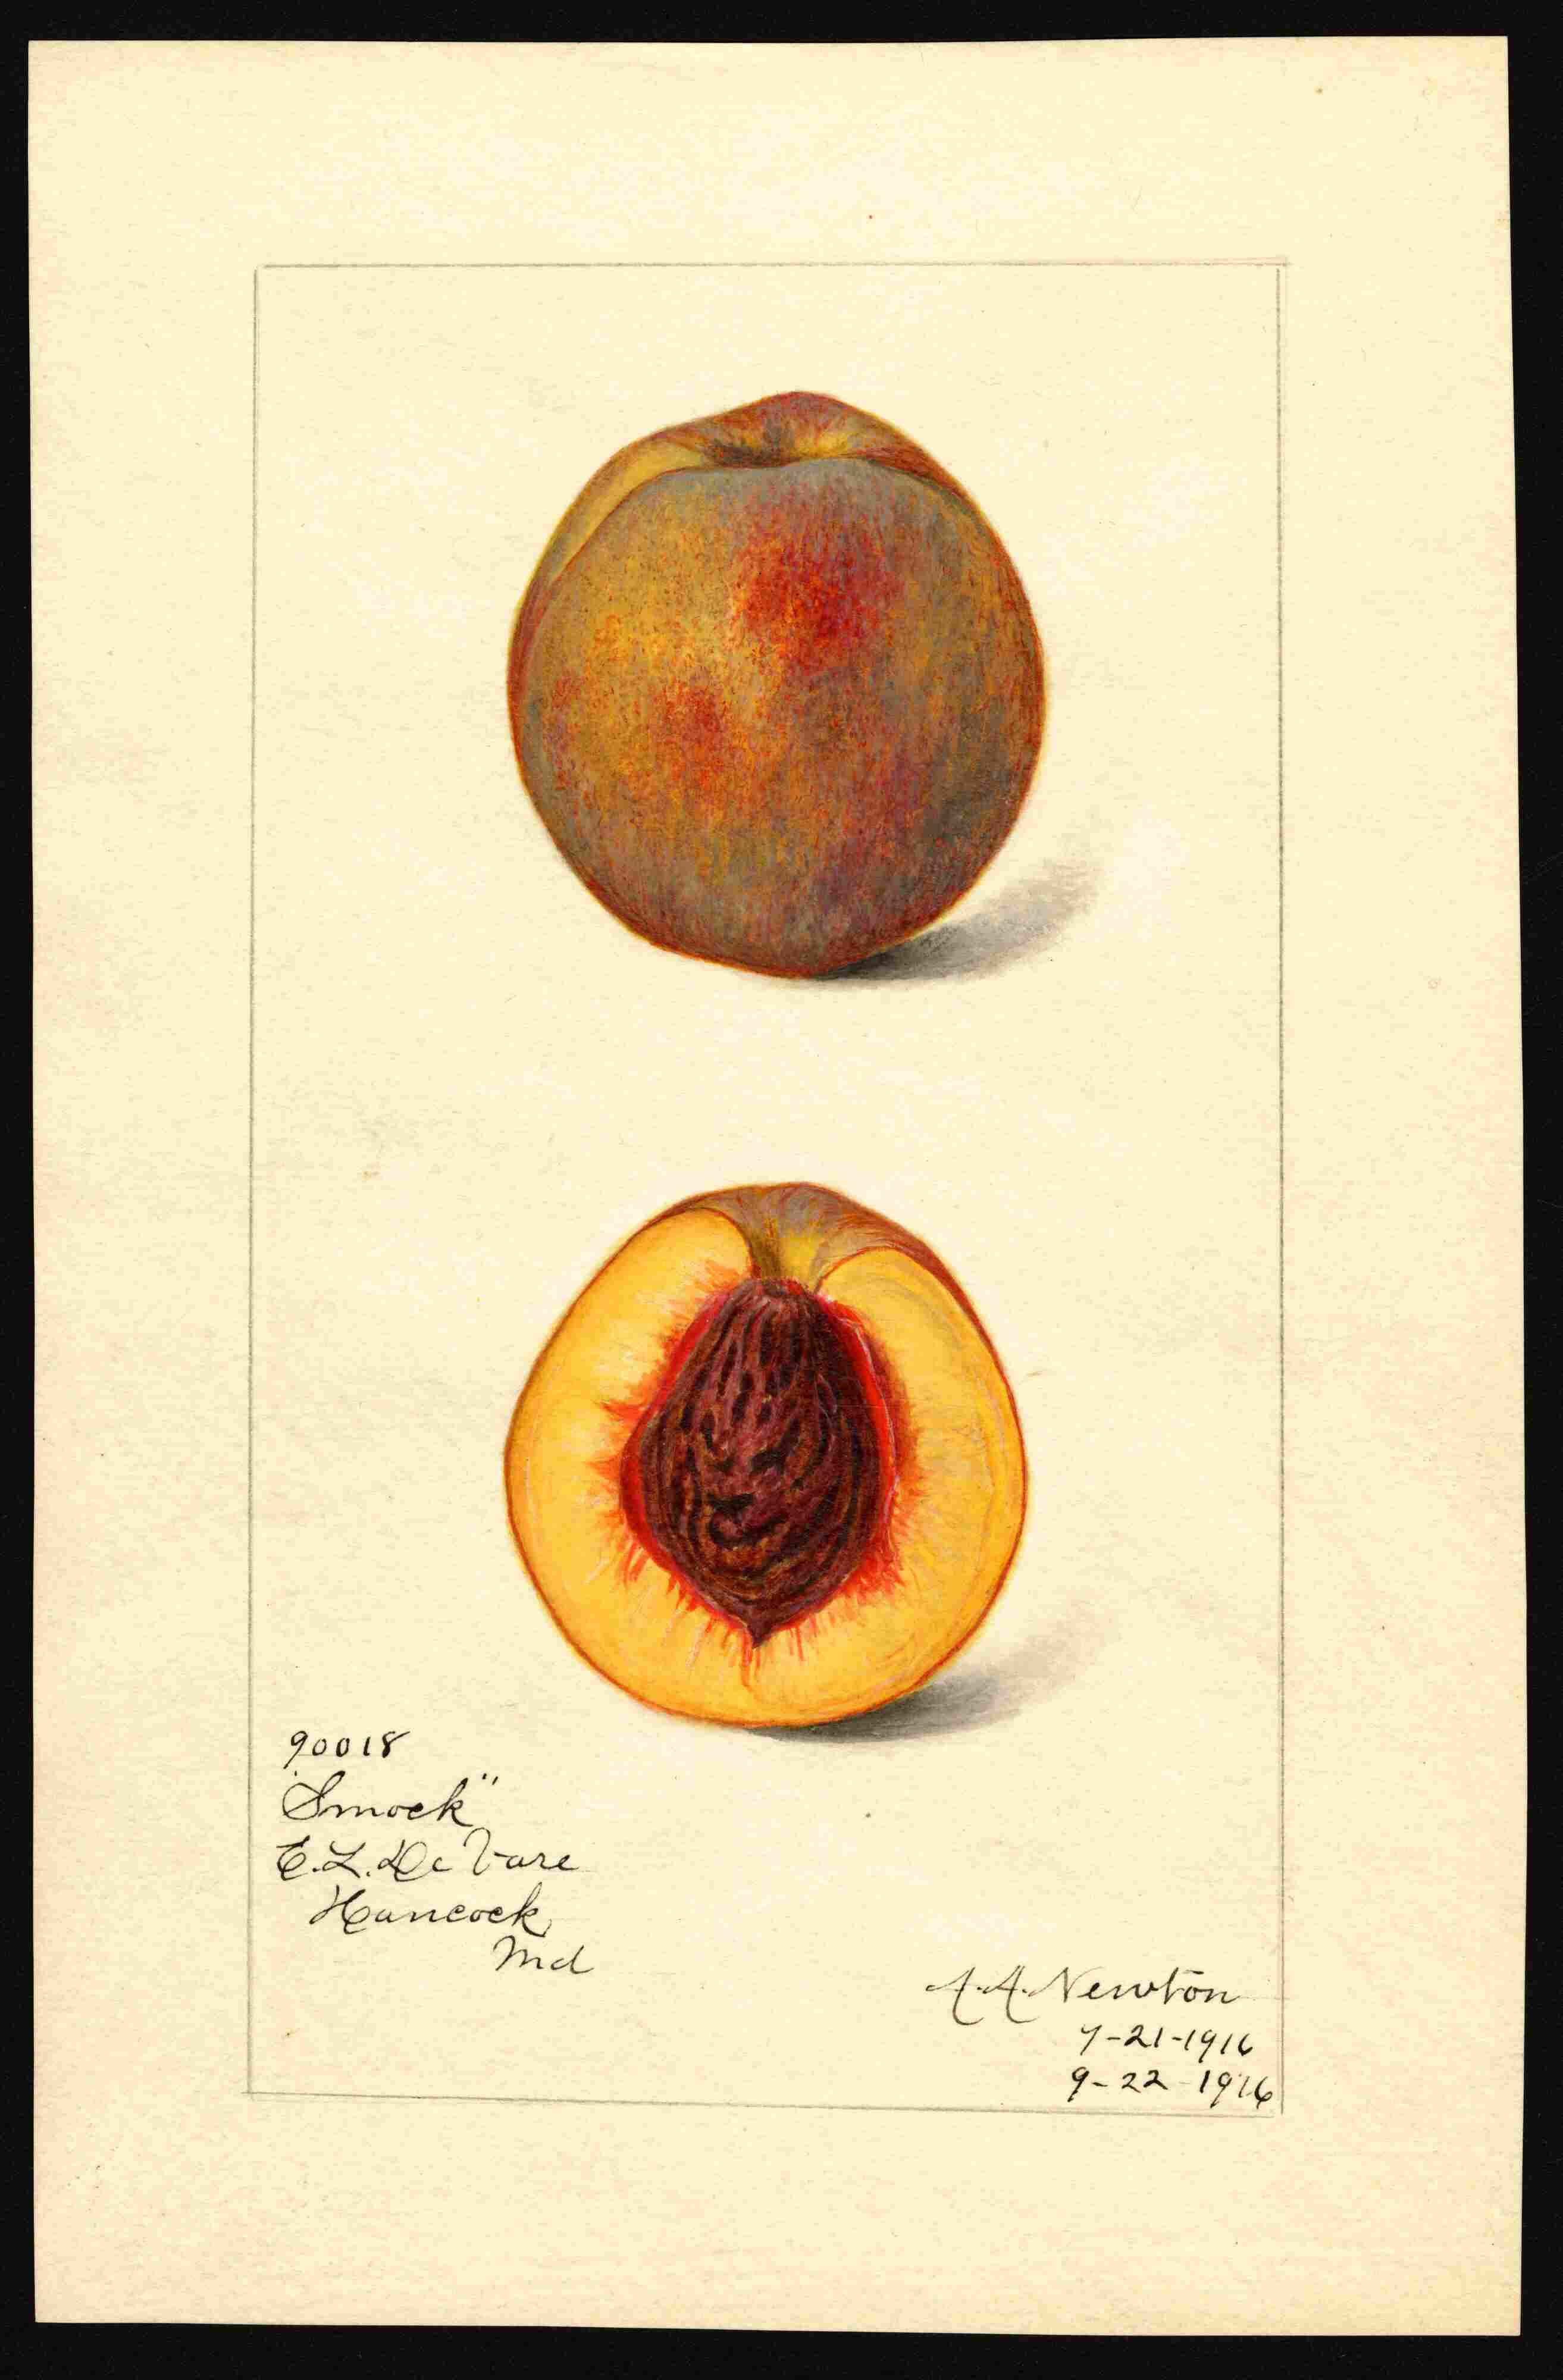 90018
"Smock"
E. L. De Vare
Hancock,
Md
A. A. Newton
9-21-1916
9-22-1916